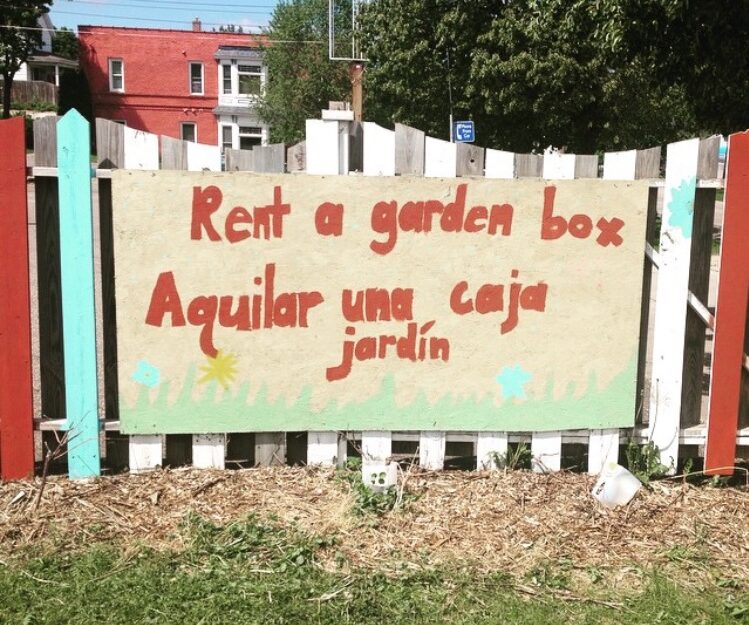 Rent a garden box
Aquilar una caja
jardín